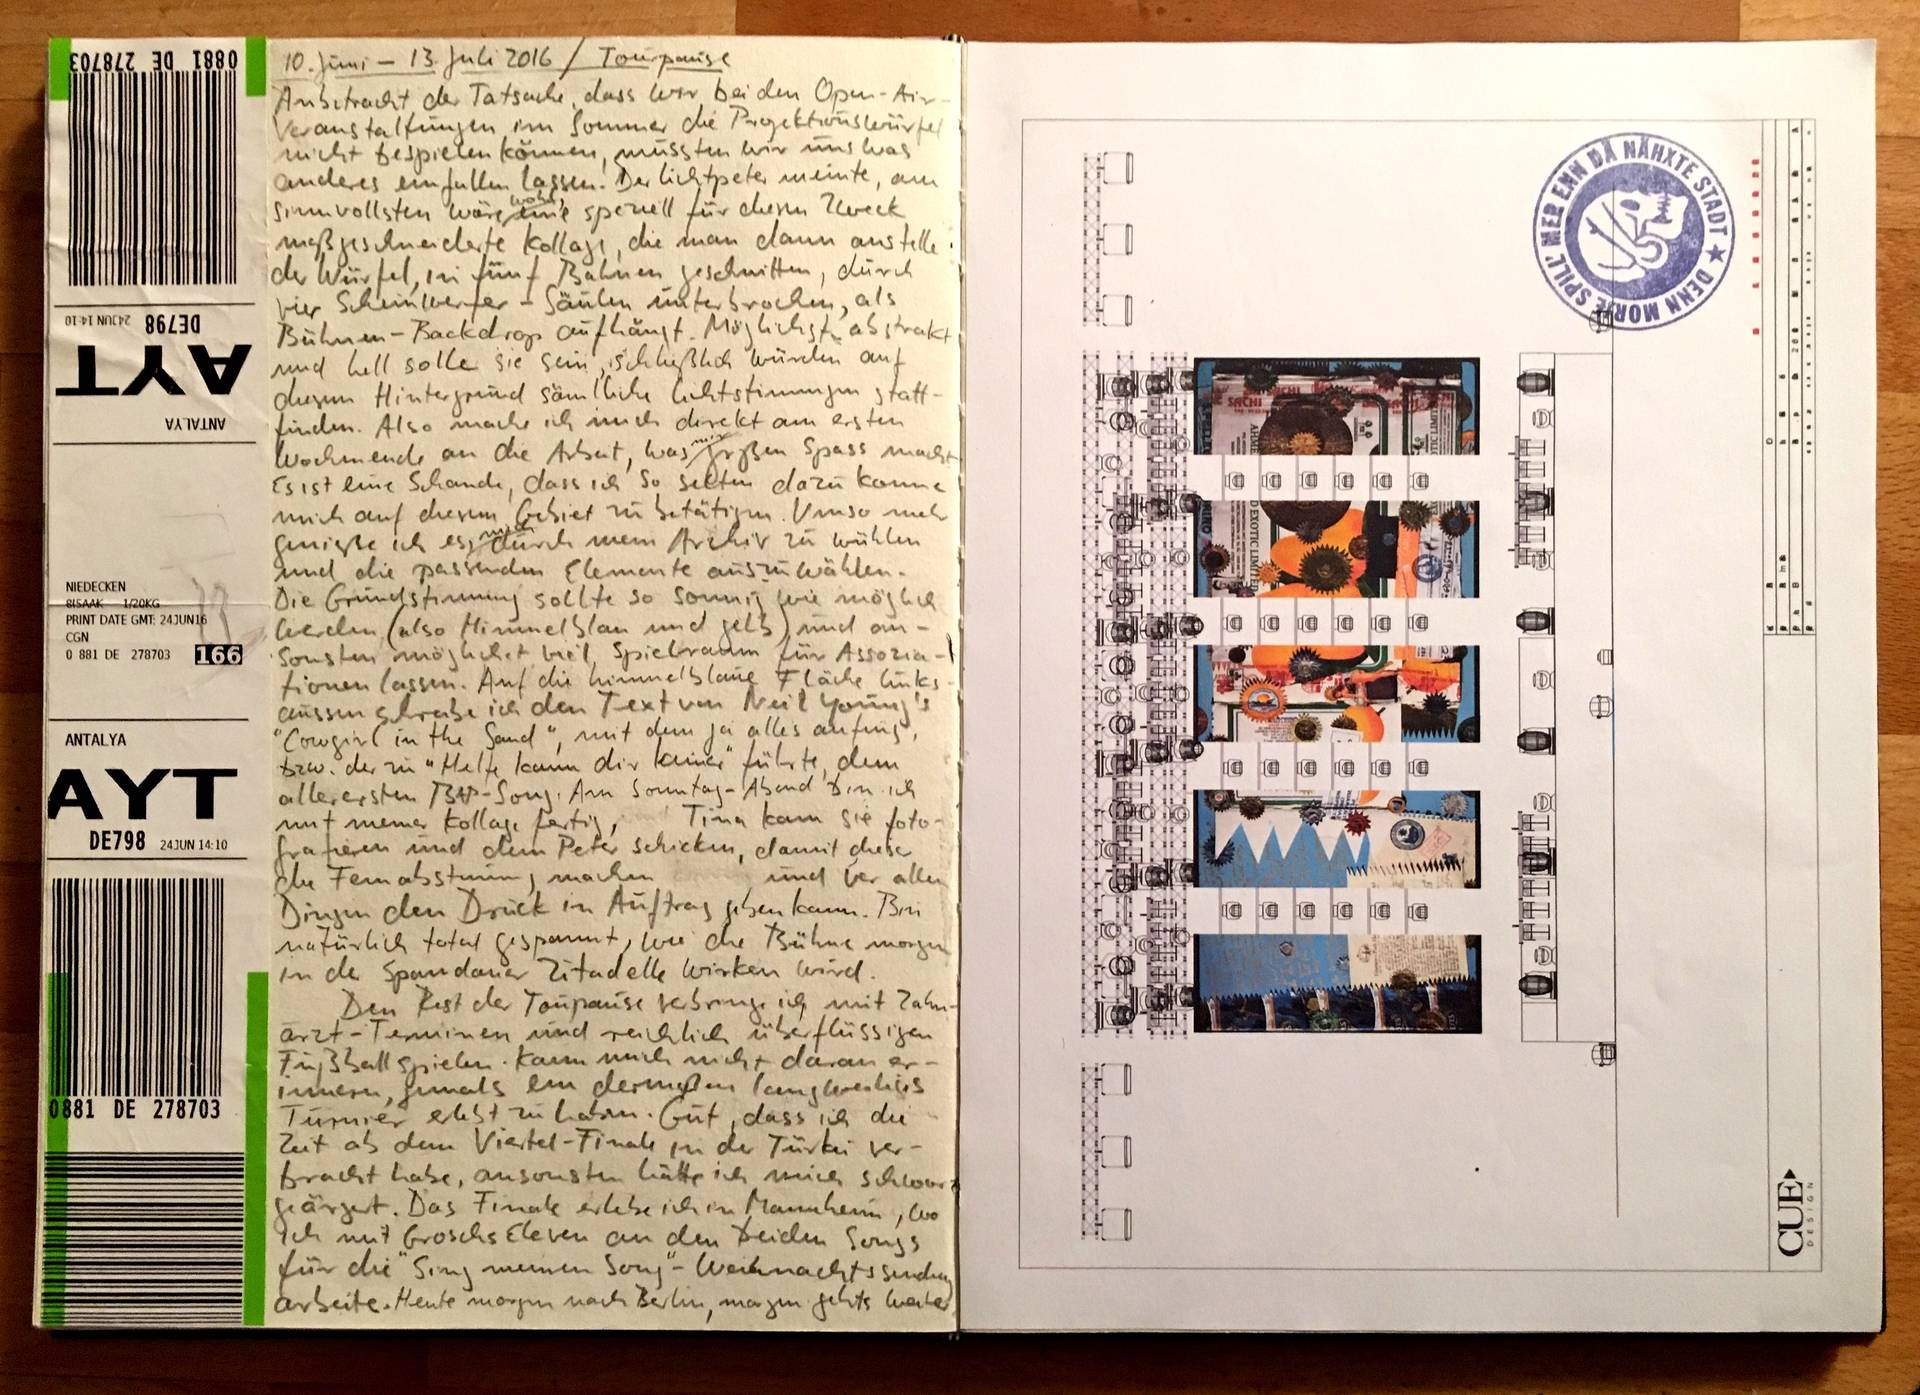 0881 DE 278703
24JUN 14:10 DE798
AYT
ANTALYA
NIEDECKEN
8ISAAK 1/20KG
PRINT DATE GMT: 24JUN16
CGN
0 881 DE 278703 166
ANTALYA
AYT
DE798 24JUN 14:10
0881 DE 278703
10. Juni – 13. Juli 2016 / Tourpause
Anbetracht der Tatsache, dass wir bei den Open-Air-
Veranstaltungen im Sommer die Projektionswürfel
nicht bespielen können, mussten wir uns was
anderes einfallen lassen. Der Lichtpeter meinte, am
sinnvollsten wäre wohl eine speziell für diesen Zweck
maßgeschneiderte Kollage, die man dann anstelle
der Würfel, in fünf Bahnen geschnitten, durch
vier Scheinwerfer-Säulen unterbrochen, als
Bühnen-Backdrop aufhängt. Möglichst abstrakt
und hell solle sie sein, schließlich würden auf
diesem Hintergrund sämtliche Lichtstimmungen statt-
finden. Also mache ich mich direkt am ersten
Wochenende an die Arbeit, was mir großen Spass macht.
Es ist eine Schande, dass ich so selten dazu komme
mich auf diesem Gebiet zu betätigen. Umso mehr
genieße ich es, mich durch mein Archiv zu wühlen
und die passenden Elemente auszuwählen.
Die Grundstimmung sollte so sonnig wie möglich
werden (also Himmelblau und gelb) und an-
sonsten möglichst viel Spielraum für Assozia-
tionen lassen. Auf die himmelblaue Fläche links-
aussen schreibe ich den Text von Neil Young's
"Cowgirl in the Sand", mit dem ja alles anfing,
bzw. der zu "Helfe kann dir keiner" führte, dem
allerersten BAP-Song. Am Sonntag-Abend bin ich
mit meiner Kollage fertig, Tina kam sie foto-
grafieren und dem Peter schicken, damit dieser
die Feinabstimmung machen und vor allen
Dingen den Druck in Auftrag geben kann. Bin
natürlich total gespannt, wie die Bühne morgen
in der Spandauer Zitadelle wirken wird.
Den Rest der Tourpause verbringe ich mit Zahn-
arzt-Terminen und reichlich überflüssigen
Fußballspielen. Kann mich nicht daran er-
innern, jemals ein dermaßen langweiliges
Turnier erlebt zu haben. Gut, dass ich die
Zeit ab dem Viertel-Finale in der Türkei ver-
bracht habe, ansonsten hätte ich mich schwarz
geärgert. Das Finale erlebe ich in Mannheim, wo
ich mit Groschs Eleven an den beiden Songs
für die "Sing meinen Song"-Weihnachtssendung
arbeite. Heute morgen nach Berlin, morgen gehts weiter
DENN MORJE SPILL' MER ENN DÄ NÄHXTE STADT ★
SACHI
EXOTIC LIMITED
CUE
DESIGN